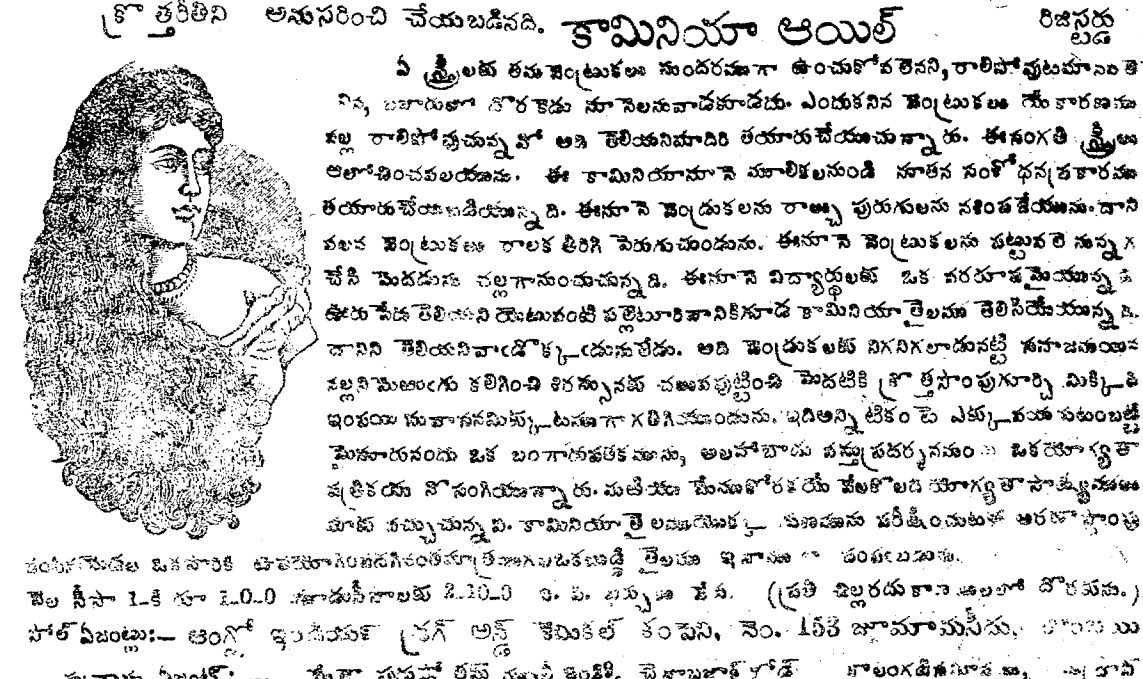 క్రొత్తరీతిని అనుసరించి చేయబడినది. కామినియా ఆయిల్ రిజిస్టర్డు
ఏ స్త్రీలకు తమ వెంట్రుకలు సుందరముగా ఉంచుకోవలెనని, రాలిపోవుటమానవలె
నిన, బజారులో దొరకెడు నూనెలనువాడకూడదు. ఎందుకనిన వెంట్రుకలు యే కారణము
వల్ల రాలిపోవుచున్నవో అది తెలియనిమాదిరి తయారుచేయుచున్నారు. ఈసంగతి స్త్రీలు
ఆలోచించవలయును. ఈ కామినియానూనె మూలికలనుండి నూతన సంశోధన ప్రకారము
తయారుచేయబడియున్నది. ఈనూనె వెండ్రుకలను రాల్చు పురుగులను నశింపజేయును. దాని
వలన వెంట్రుకలు రాలక తిరిగి పెరుగుచుండును. ఈనూనె వెంట్రుకలను పట్టువలె నున్నగ
చేసి మెదడును చల్లగానుంచుచున్నది. ఈనూనె విద్యార్థులకు ఒక వరరూపమైయున్నది
ఊరు పేరు తెలియని యెటువంటి పల్లెటూరివానికిగూడ కామినియా తైలము తెలిసియేయున్నది.
దానిని తెలియనివాఁడొక్కఁడునులేడు. అది వెండ్రుకలకు నిగనిగలాడునట్టి సహజమయిన
నల్లనిమెఱుఁగు కలిగించి శిరస్సునకు చలువపుట్టించి మెదటికి క్రొత్తసొంపుగూర్చి మిక్కిలి
ఇంపయి సువాసనమిక్కుటముగా గలిగియుండును. ఇదిఅన్నిటికంటె ఎక్కువయగుటంబట్టి
మైసూరునందు ఒక బంగారుపతకమును, అలహాబాదు వస్తుప్రదర్శనమం ఒకయోగ్యతా
పత్రికయు నొసంగియున్నారు. మఱియు మేముకోరకయే వేలకొలది యోగ్యతాసాక్ష్యములు
మాకు వచ్చుచున్నవి. కామినియాతైలముయొక్క గుణమును పరీక్షించుటకు అరణాస్టాంపు
పంపినయెడల ఒకసారికి ఉపయోగింపదగినంతమాత్రముగలఒకబుడ్డి తైలము ఇనాముగా పంపబడును.
వెల సీసా 1-కి రూ 1-0-0 మూడుసీసాలకు 2-10-0 వి. పి. ఖర్చులు వేరు. (ప్రతి చిల్లరదుకాణములలో దొరకును.)
సోల్ ఏజంట్లు:— ఆంగ్లో ఇండియన్ డ్రగ్ అన్డ్ కెమికల్ కంపెని, నెం. 153 జూమామసీదు, బొంబాయి
ఏజంట్: